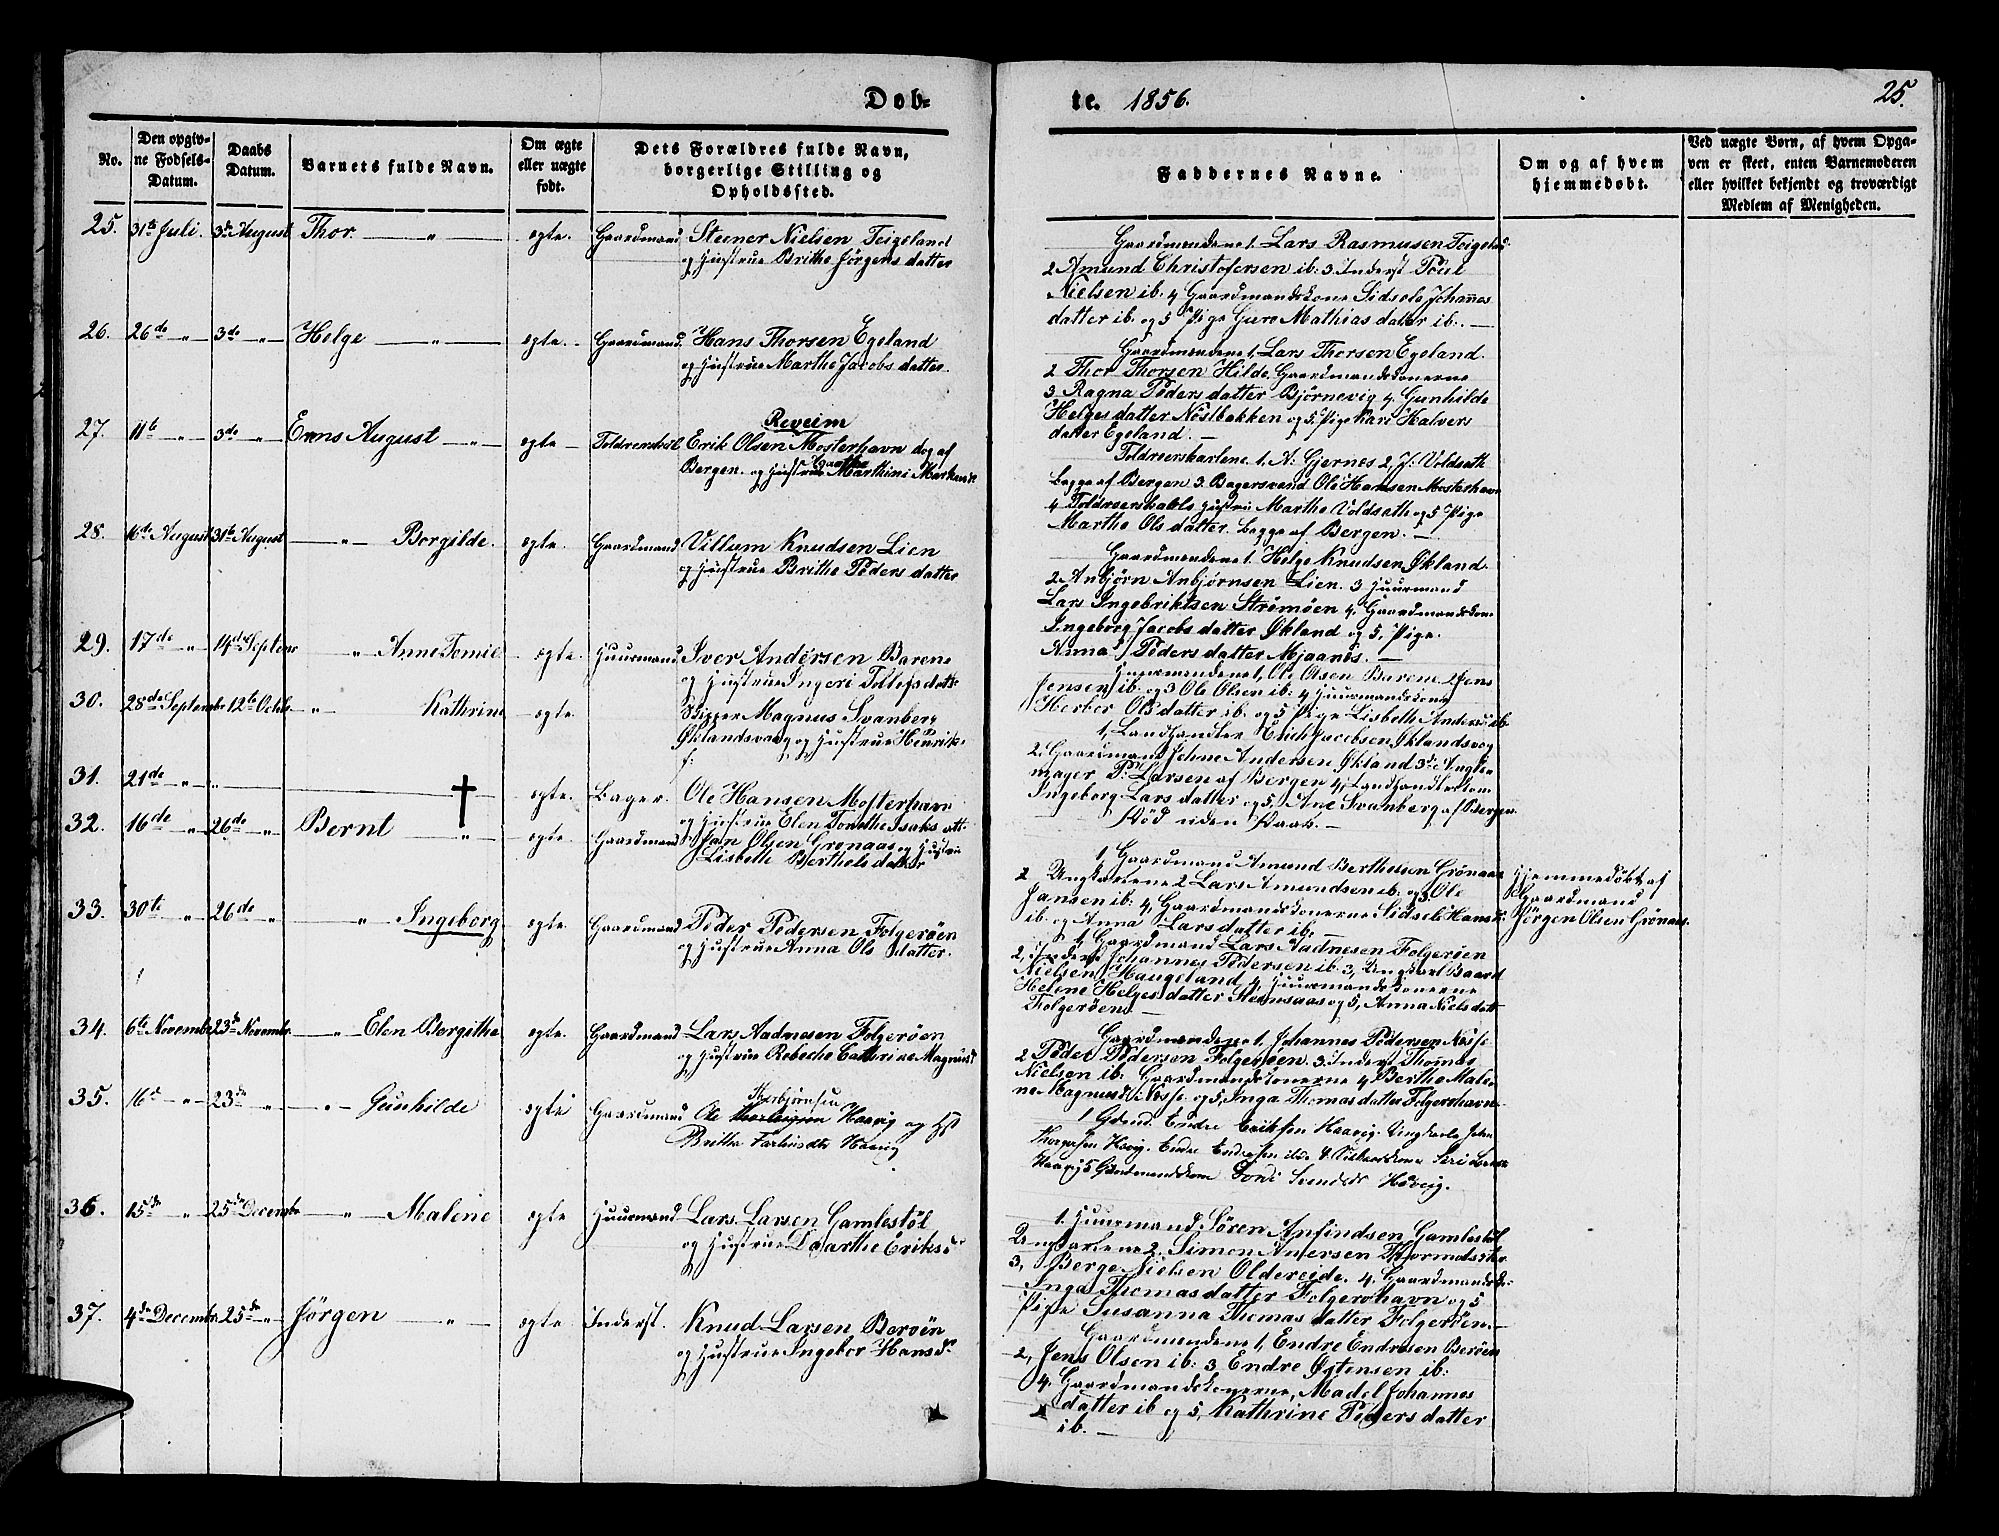 Døb-
te. 1856.
25.
No.
Den opgiv-
ne Fødsels-
Datum.
Daabs
Datum.
Barnets fulde Navn.
Om ægte
eller uægte
født.
Dets Forældres fulde Navn,
borgerlige Stilling og
Opholdssted.
Faddernes Navne.
Om og af hvem
hjemmedøbt.
Ved uægte Børn, af hvem Opga-
ven er skeet, enten Barnemoderen
eller hvilket bekjendt og troværdigt
Medlem af Menigheden.
25. 31te Juli. 3de August Thor. — „ — ægte. Gaardmand Steener Nielsen Teigeland
og Hustrue Brithe Jørgensdatter
Gaardmændene 1. Lars Rasmusen Teigeland
2 Amund Christofersen ib: 3. Inderst Poul
Nielsen ib. 4 Gaardmandskone Sidsele Johannes
datter ib. og 5 Pige Guro Mathiasdatter ib. —
26. 26de „ 3de „ Helge — „ — ægte. Gaardmand. Hans Thorsen Egeland
og Hustrue Marthe Jacobsdatter.
Gaardmændene 1, Lars Thorsen Egeland.
2 Thor Thorsen Hilde. Gaardmandskonerne
3 Ragna Pedersdatter Bjørnevig 4. Gunhilde
Helgesdatter Nøstbakken og 5. Pige Kari Halvers
datter Egeland. —
27. 11te „ 3de „ Enns August — „ — ægte —
Reveim
Erik Olsen Mosterhavn dog af
Bergen. og Hustrue Marthine Markusd.
Toldroerskarlene. 1. A: Gjernes 2, J: Voldseth
begge af Bergen 3. Bagersvend Ole Hansen Mosterhavn
4 Toldroerskarls Hustru Marthe Voldseth og 5 Pige
Marthe Olsdatter. begge af Bergen. —
28. 16de August 31te August — „ — Borgilde. ægte. Gaardmand Villum Knudsen Lien
og Hustrue Brithe Pedersdatter
Gaardmændene 1. Helge Knudsen Økland.
2 Anbjørn Anbjørnsen Lien. 3 Huurmand
Lars Ingebriktsen Strømøen 4. Gaardmandskon.
Ingeborg Jacobsdatter Økland og 5. Pige.
Anna Pedersdatter Mjaanes. —
29. 17de „ 14de Septem „ Anne Tomie ægte. Huurmand Iver Andersen Barene
og Hustrue Ingeri Tellefsdatt.
Huurmændene 1, Ole Olsen Barene 2 Jens
Jensen ib. og 3 Ole Olsen ib: 4 Huurmandskone
Herber Olsdatter ib. og 5 Pige Lisbeth Andersd ib.
30. 28de Septembr 12te Octob. „ Kathrine ægte. Skipper Magnus Svanberg
Øklandsvaag og Hustrue Henrik-
1, Landhandler Erich Jacobsen Øklandsvaag
2. Gaardmand Johne Andersen Økland 3de
mager P: Larsen af Bergen 4, Landhandlerkone
Ingeborg Larsdatter og 5, Ane Svanberg af Bergen.
31. 21de „ „ † ægte. Bager. Ole Hansen Mosterhavn
og Hustrue Elen Tonethe Isaksdtt.
Død uden Daab. —
32. 16de „ 26de „ Bernt „ ægte. Gaardmand Jan Olsen Grønaas og Hustrue
Lisbeth Berthelsdatter
1, Gaardmand Amund Berthelsen Grønaas
2 Ungkarlene 2 Lars Amundsen ib. og 3. Ole
Jansen ib: 4, Gaardmandskonerne Sidsele Hansd.
ib. og Anna Larsdatter ib. —
Hjemmedøbt af
Gaardmand
Jørgen Olsen Grønaas.
33. 30te „ 26de „ „ Ingeborg ægte. Gaardmand Peder Pedersen Folgerøen
og Hustrue Anna Olsdatter.
1 Gaardmand Lars Aadnesen Folgerøen
2, Inderst Johannes Pedersen ib. 3, Ungkarl Baard
Nielsen Haugeland, 4, Huurmandskonerne
Helene Helgesdatter Steensaas og 5, Anna Nielsdatt
Folgerøen. —
34. 6te Novembr 23de Novembr. „ Elen Bergithe ægte. Gaardmand Lars Aadnesen Folgerøen
og Hustrue Rebeche Cathrine Magnusd
Gaardmændene 1, Johannes Pedersen Nesse
2 Peder Pedersen Folgerøen. 3. Inderst Thomas
Nielsen ib: Gaardmandskonerne 4 Berthe Male-
ne Magnusd: Nesse. og 5, Inga Thomasdatter Folgerøhavn
35. 16de „ 23de „ „ Gunhilde ægte Gaardmand
Thorbjørnsen
Ole Haavig og Hst
Britha Haavig
1 Gdmd. Endre Eriksen Haavig. Ungkarle John
Haavig. Endre Endresen ibd 4.
Haavig 5 Gaardmandskone Haavig.
36. 15de „ 25de Decembr „ Malene ægte Huurmand Lars Larsen Gamlestøl
og Hustrue Daarthe Eriksd
1. Huurmand Søren Anfindsen Gamlestøl
Ungkarlene 2. Simon Andersen Thormodsæter
3, Berge Nielsen Oldereide. 4. Gaardmandsk.
Inga Thomasdatter Folgerøhavn og 5
Pige Susanna Thomasdatter Folgerøen. —
37. 4de Decembr 25de „ Jørgen — „ ægte Inderst. Knud Larsen Berøen
og Hustrue Ingebor Hansd.
Gaardmændene 1, Endre Endresen Berøen
2, Jens Olsen ib: 3 Endre Østensen ib:
4. Gaardmandskonerne, Madel Johannes
datter ib og 5, Kathrine Pedersdatter
ib. —